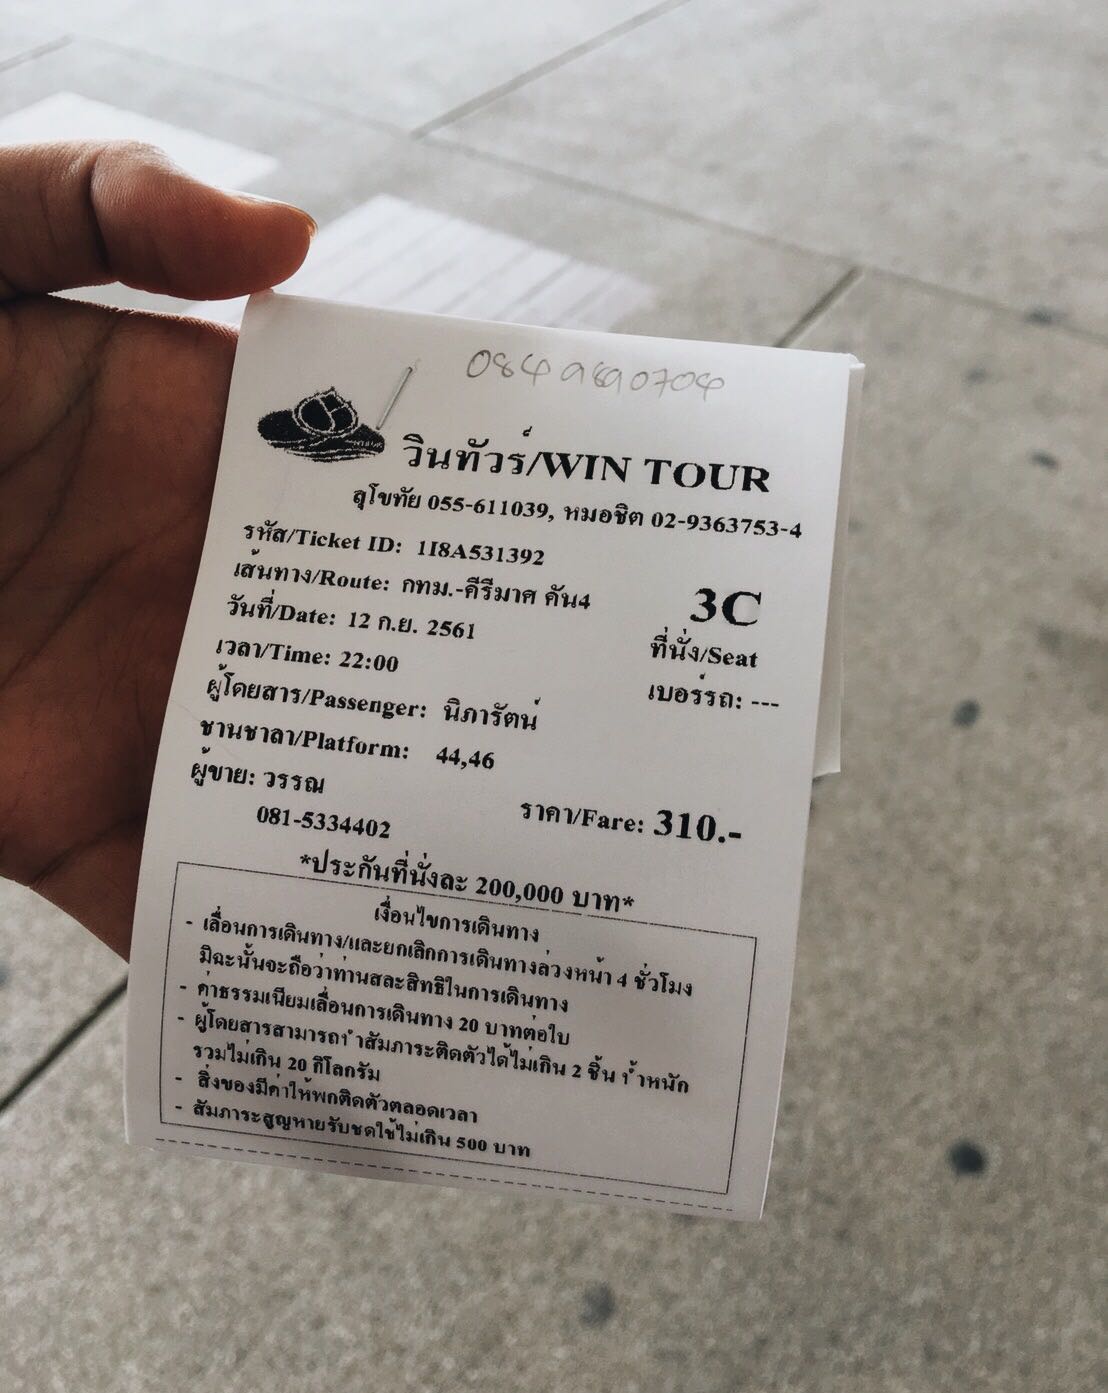 0849890704
วินทัวร์/WIN TOUR
สุโขทัย 055-611039, หมอชิต 02-9363753-4
รหัส/Ticket ID: 1I8A531392
เส้นทาง/Route: กทม.-คีรีมาศ คัน4
3C
วันที่/Date: 12 ก.ย. 2561
ที่นั่ง/Seat
เวลา/Time: 22:00
เบอร์รถ: ---
ผู้โดยสาร/Passenger: นิภารัตน์
ชานชาลา/Platform: 44,46
ผู้ขาย: วรรณ
ราคา/Fare: 310.-
081-5334402
*ประกันที่นั่งละ 200,000 บาท*
เงื่อนไขการเดินทาง
- เลื่อนการเดินทาง/และยกเลิกการเดินทางล่วงหน้า 4 ชั่วโมง
มิฉะนั้นจะถือว่าท่านสละสิทธิในการเดินทาง
- ค่าธรรมเนียมเลื่อนการเดินทาง 20 บาทต่อใบ
- ผู้โดยสารสามารถนำสัมภาระติดตัวได้ไม่เกิน 2 ชิ้น น้ำหนัก
รวมไม่เกิน 20 กิโลกรัม
- สิ่งของมีค่าให้พกติดตัวตลอดเวลา
- สัมภาระสูญหายรับชดใช้ไม่เกิน 500 บาท